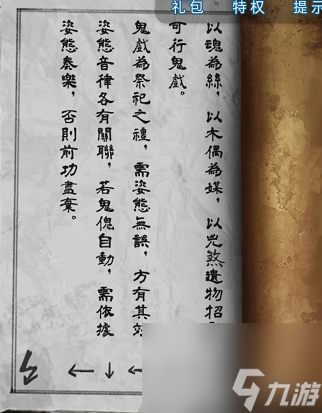 礼包 特权 提示
以魂為絲，以木偶為媒，以兇煞遺物招
可行鬼戲。
鬼戲為祭祀之禮，需姿態無誤，方有其效
姿態音律各有關聯，若鬼傀自動，需依據
姿態奏樂，否則前功盡棄。
九游